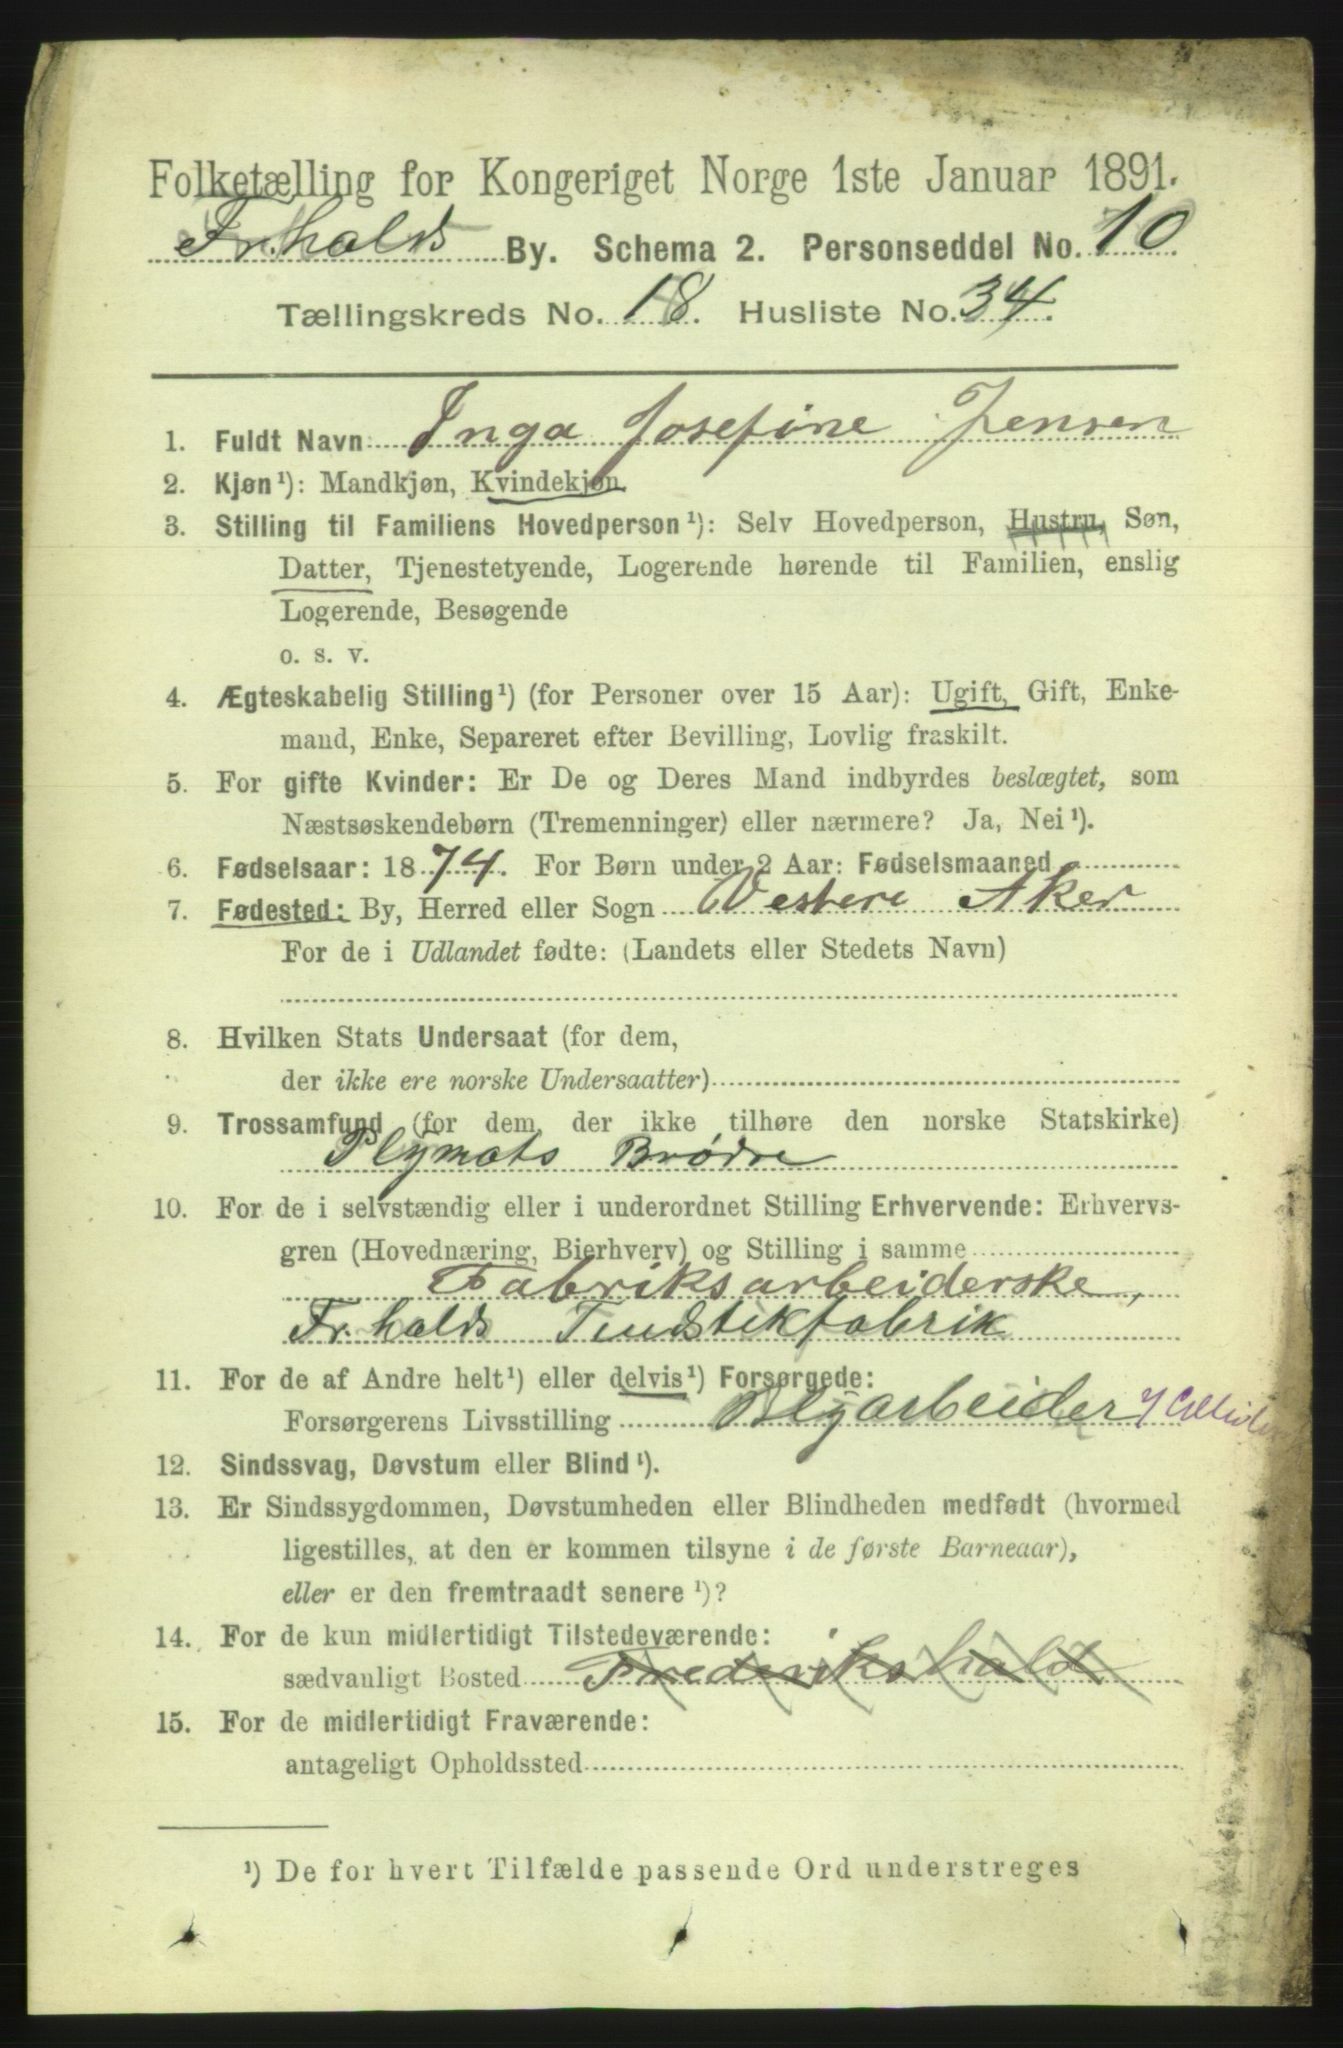 Folketælling for Kongeriget Norge 1ste Januar 1891.
Fr.halds By. Schema 2. Personseddel No. 10
Tællingskreds No. 18. Husliste No. 34.
1. Fuldt Navn Inga Josefine Jensen
2. Kjøn¹): Mandkjøn, Kvindekjøn
3. Stilling til Familiens Hovedperson¹): Selv Hovedperson, Hustru, Søn,
Datter, Tjenestetyende, Logerende hørende til Familien, enslig
Logerende, Besøgende
o. s. v.
4. Ægteskabelig Stilling¹) (for Personer over 15 Aar): Ugift, Gift, Enke-
mand, Enke, Separeret efter Bevilling, Lovlig fraskilt.
5. For gifte Kvinder: Er De og Deres Mand indbyrdes beslægtet, som
Næstsøskendebørn (Tremenninger) eller nærmere? Ja, Nei¹).
6. Fødselsaar: 1874. For Børn under 2 Aar: Fødselsmaaned
7. Fødested: By, Herred eller Sogn Vestere Aker
For de i Udlandet fødte: (Landets eller Stedets Navn)
8. Hvilken Stats Undersaat (for dem,
der ikke ere norske Undersaatter)
9. Trossamfund (for dem, der ikke tilhøre den norske Statskirke)
Plymots Brødre
10. For de i selvstændig eller i underordnet Stilling Erhvervende: Erhvervs-
gren (Hovednæring, Bierhverv) og Stilling i samme
Fabriksarbeiderske,
Fr.halds Tindstikfabrik
11. For de af Andre helt¹) eller delvis¹) Forsørgede:
Forsørgerens Livsstilling Blyarbeider
12. Sindssvag, Døvstum eller Blind¹).
13. Er Sindssygdommen, Døvstumheden eller Blindheden medfødt (hvormed
ligestilles, at den er kommen tilsyne i de første Barneaar),
eller er den fremtraadt senere¹)?
14. For de kun midlertidigt Tilstedeværende:
sædvanligt Bosted Frederikshald
15. For de midlertidigt Fraværende:
antageligt Opholdssted
¹) De for hvert Tilfælde passende Ord understreges